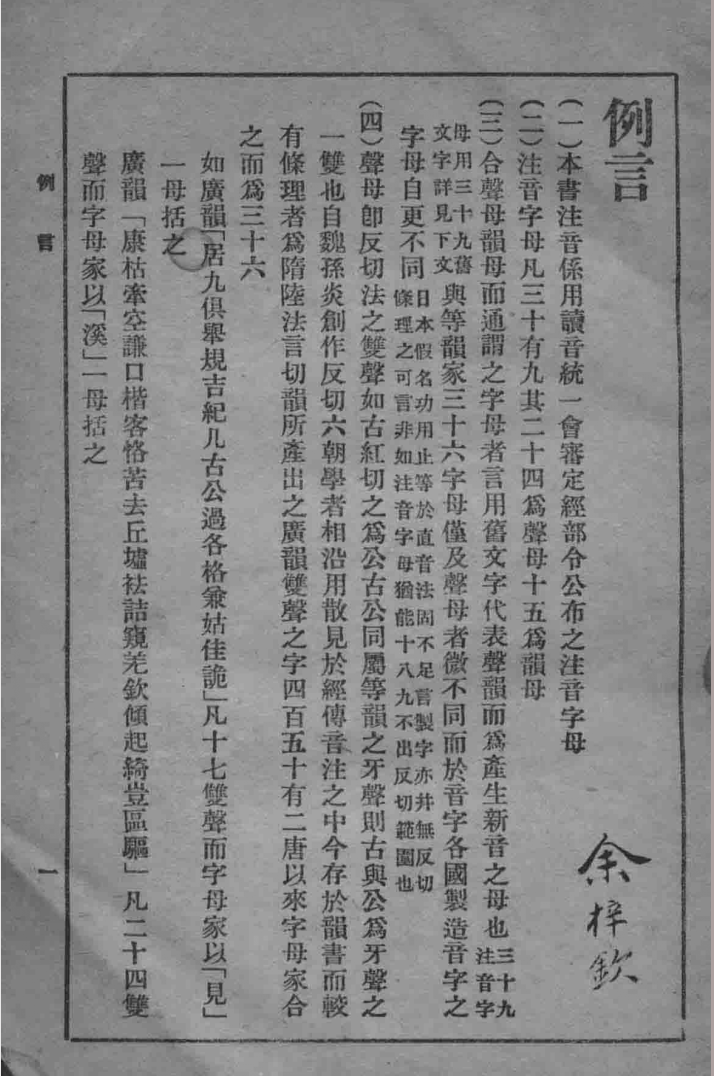 例言
余梓欽
(一)本書注音係用讀音統一會審定經部令公布之注音字母
(二)注音字母凡三十有九其二十四爲聲母十五爲韻母
(三)合聲母韻母而通謂之字母者言用舊文字代表聲韻而爲產生新音之母也三十九注音字
母用三十九舊文字詳見下文與等韻家三十六字母僅及聲母者微不同而於音字各國製造音字之
字母自更不同日本假名功用止等於直音法固不足言製字亦幷無反切條理之可言非如注音字母猶能十八九不出反切範圍也
(四)聲母卽反切法之雙聲如古紅切之爲公古公同屬等韻之牙聲則古與公爲牙聲之
一雙也自魏孫炎創作反切六朝學者相沿用散見於經傳音注之中今存於韻書而較
有條理者爲隋陸法言切韻所產出之廣韻雙聲之字四百五十有二唐以來字母家合
之而爲三十六
如廣韻「居九俱舉規吉紀几古公過各格兼姑佳詭」凡十七雙聲而字母家以「見」
一母括之
廣韻「康枯牽空謙口楷客恪苦去丘墟袪詰窺羌欽傾起綺豈區驅」凡二十四雙
聲而字母家以「溪」一母括之
例言
一